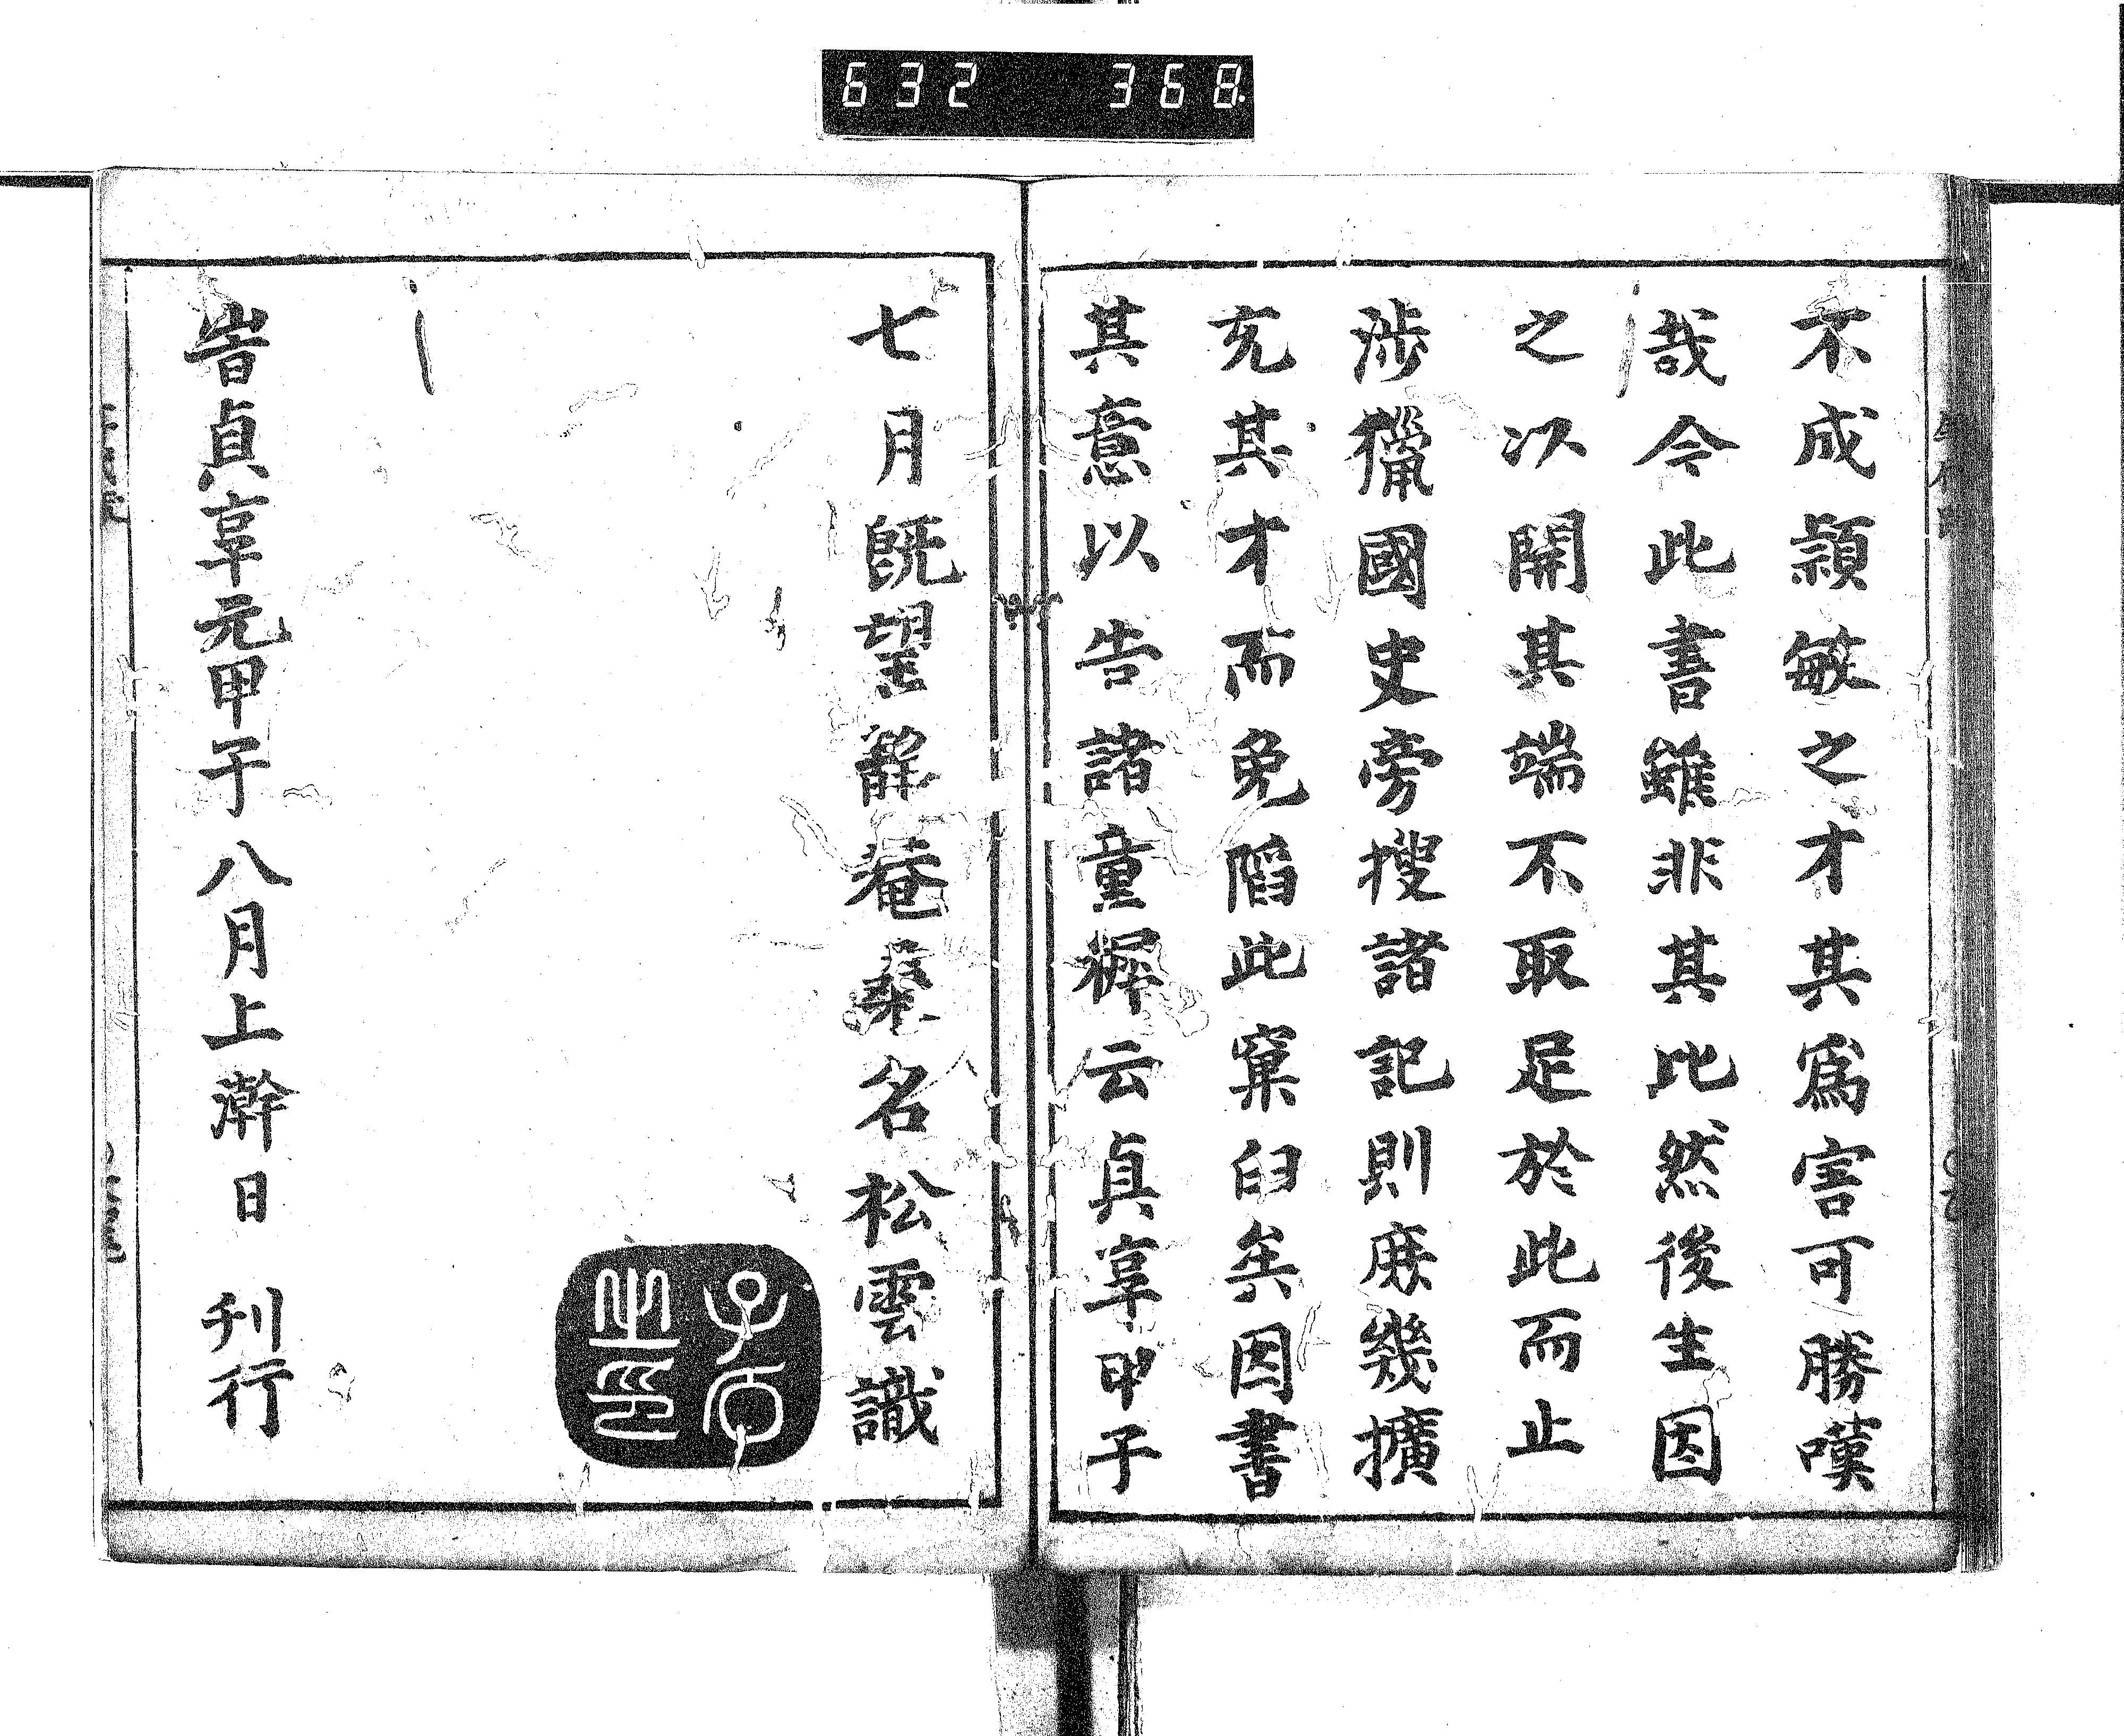 632 368.
不成穎敏之才其爲害可勝嘆
哉今此書雖非其比然後生因
之以開其端不取足於此而止
涉獵國史旁搜諸記則庶幾擴
充其才而免陷此窠臼矣因書
其意以告諸童穉云貞享甲子
七月既望 菴桑名松雲識
子石
之印
旹貞享元甲子八月上澣日 刊行